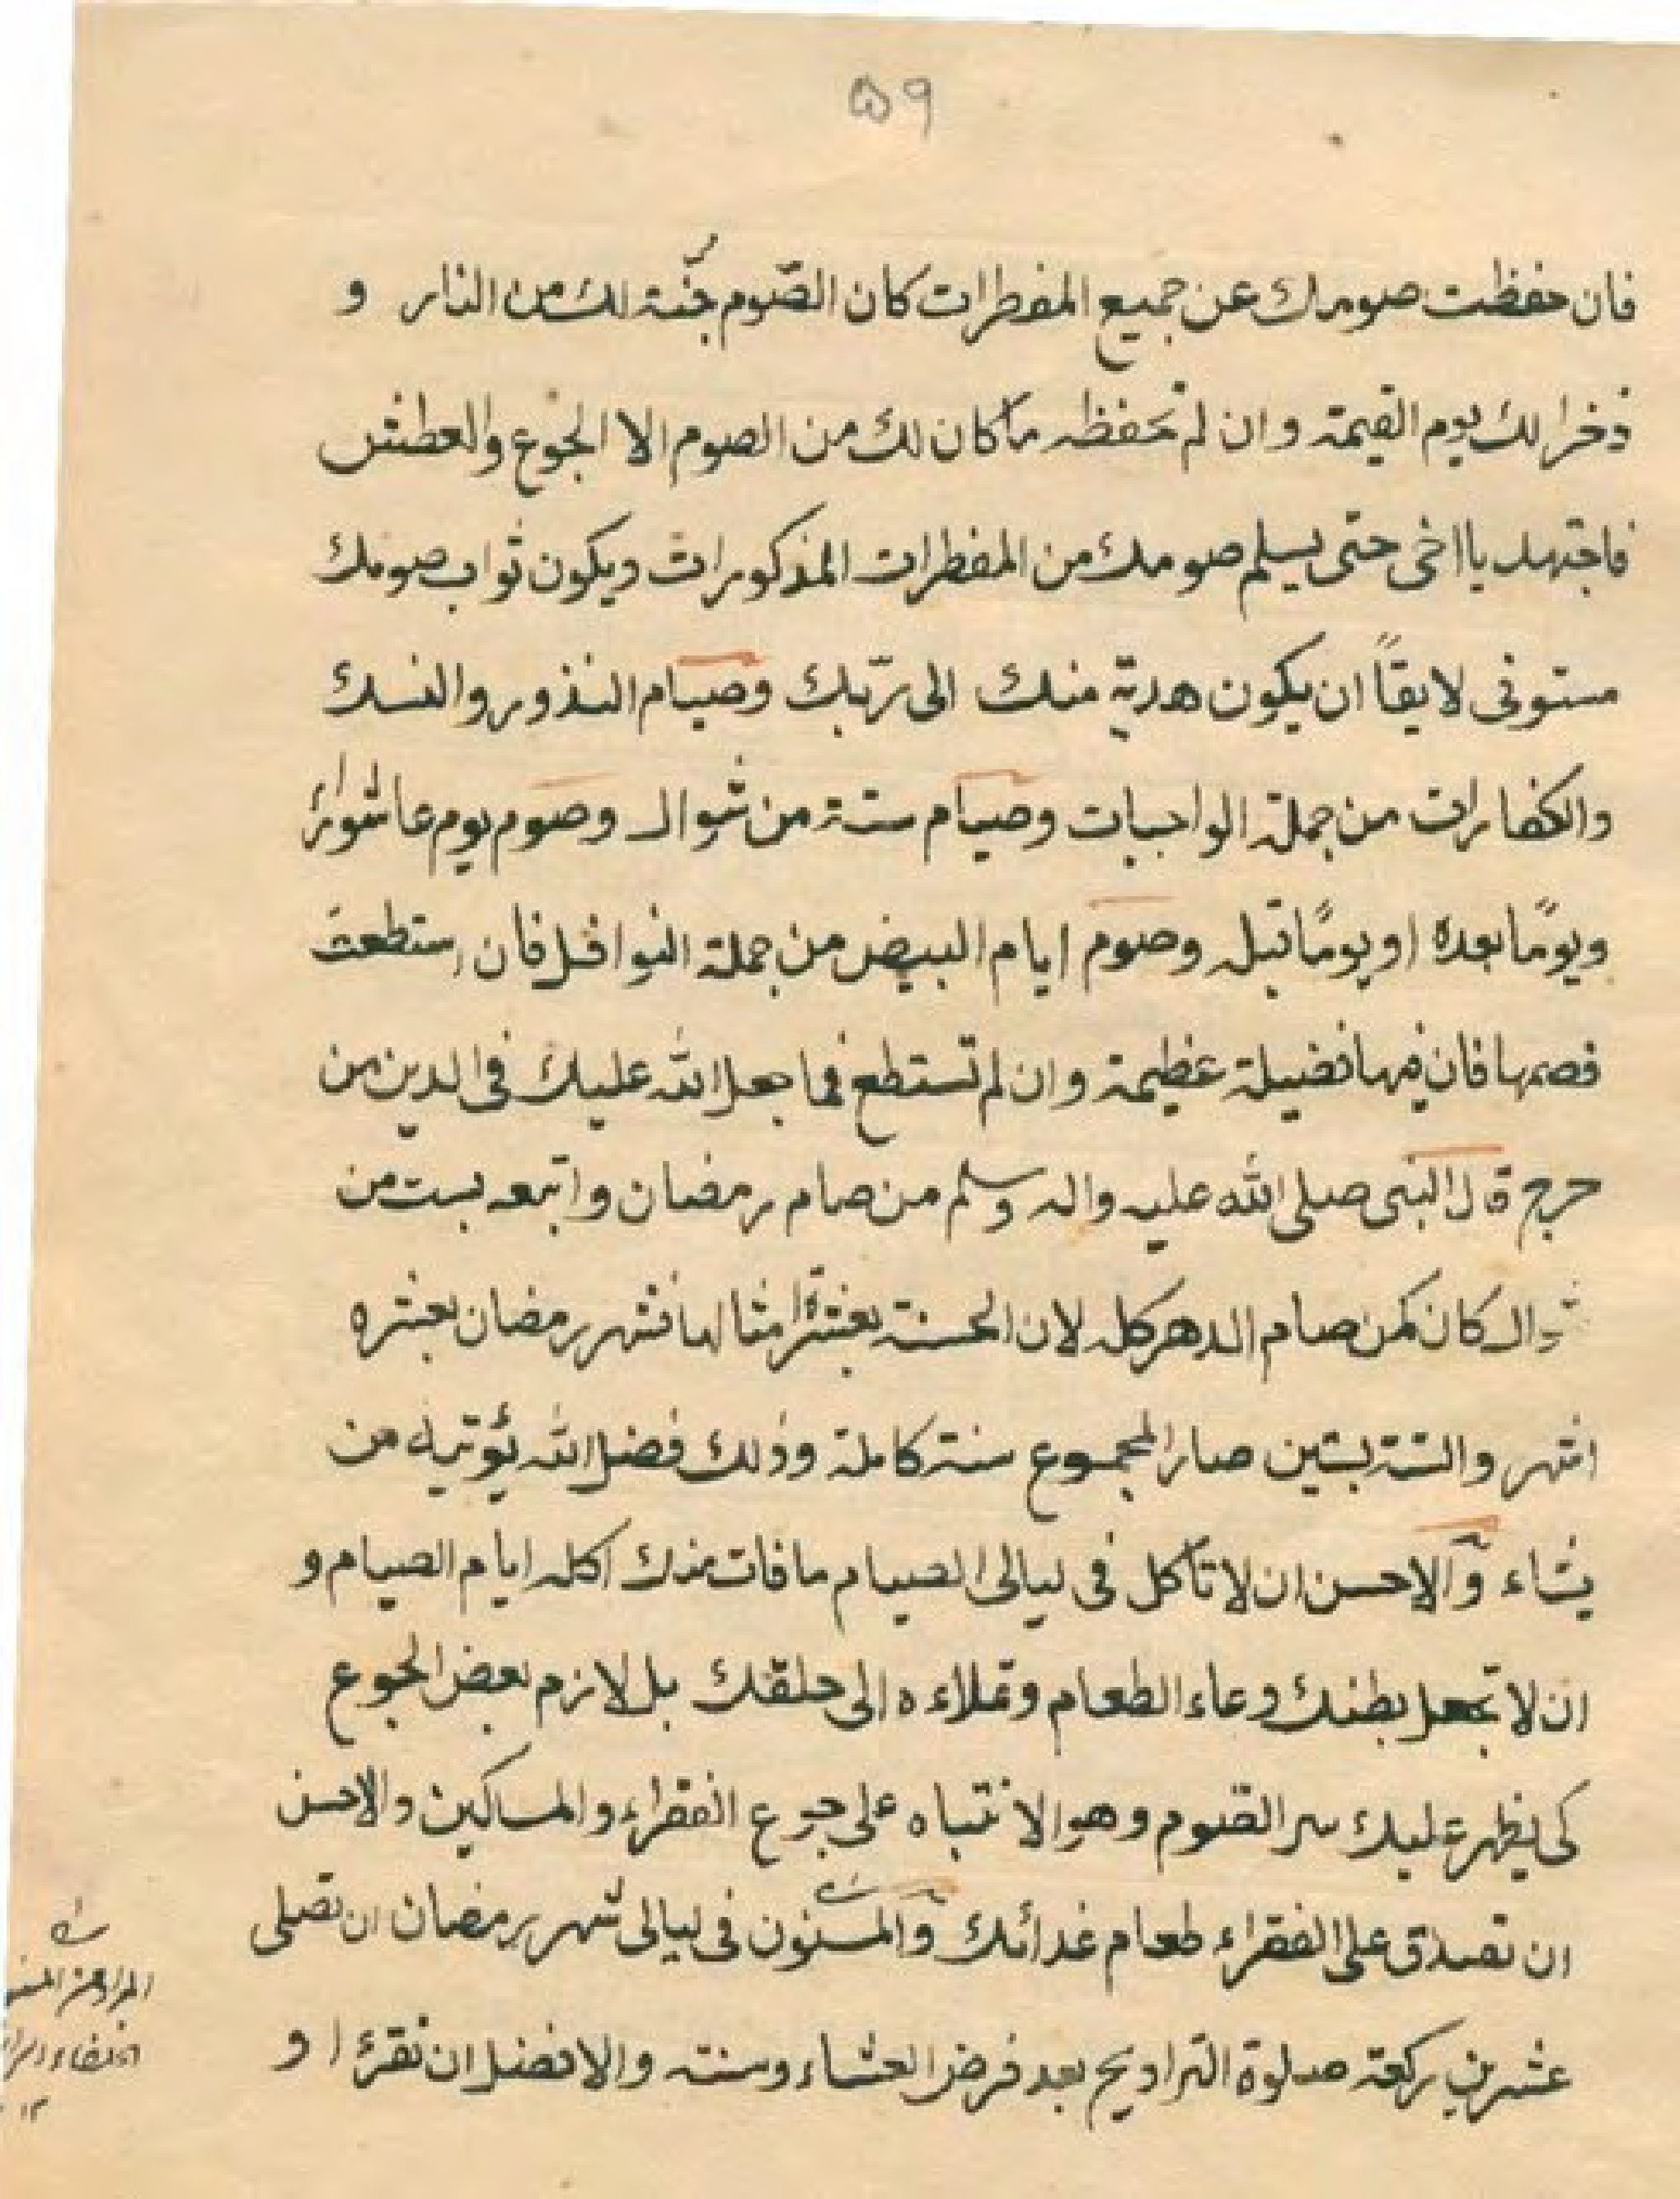 ۵۹
فان حفظت صومك عن جميع المفطرات كان الصّوم جُنّة لك من النار و
ذخرا لك يوم القيمة وان لم تحفظه ما كان لك من الصوم الا الجوع والعطش
فاجتهد يا اخى حتى يسلم صومك من المفطرات المذكورات ويكون ثواب صومك
مستوفى لايقاً ان يكون هدية منك الى ربّك وصيام النذور والنسك
والكفارات من جملة الواجبات وصيام ستة من شوال وصوم يوم عاشوراء
ويومًا بعده او يومًا قبله وصوم ايام البيض من جملة النوافل فان استطعت
فصمها فان فيها فضيلة عظيمة وان لم تستطع فما جعل الله عليك فى الدين من
حرج قال النبى صلى الله عليه واله وسلم من صام رمضان واتبعه بست من
شوال كان كمن صام الدهر كله لان الحسنة بعشرة امثالها فشهر رمضان بعشره
اشهر والستة بستين صار المجموع سنة كاملة وذلك فضل الله يؤتيه من
يشاء والاحسن ان لا تأكل فى ليالى الصيام ما فات منك اكله ايام الصيام و
ان لا تجعل بطنك وعاء الطعام وتملاءه الى حلقك بل لازم بعض الجوع
كى يظهر عليك سر الصوم وهو الانتباه على جوع الفقراء والمساكين والاحسن
ان تصدق على الفقراء طعام غدائك والمسنون فى ليالى شهر رمضان ان تصلى
عشرين ركعة صلوة التراويح بعد فرض العشاء وسنته والافضل ان تقرئ او
۱۲